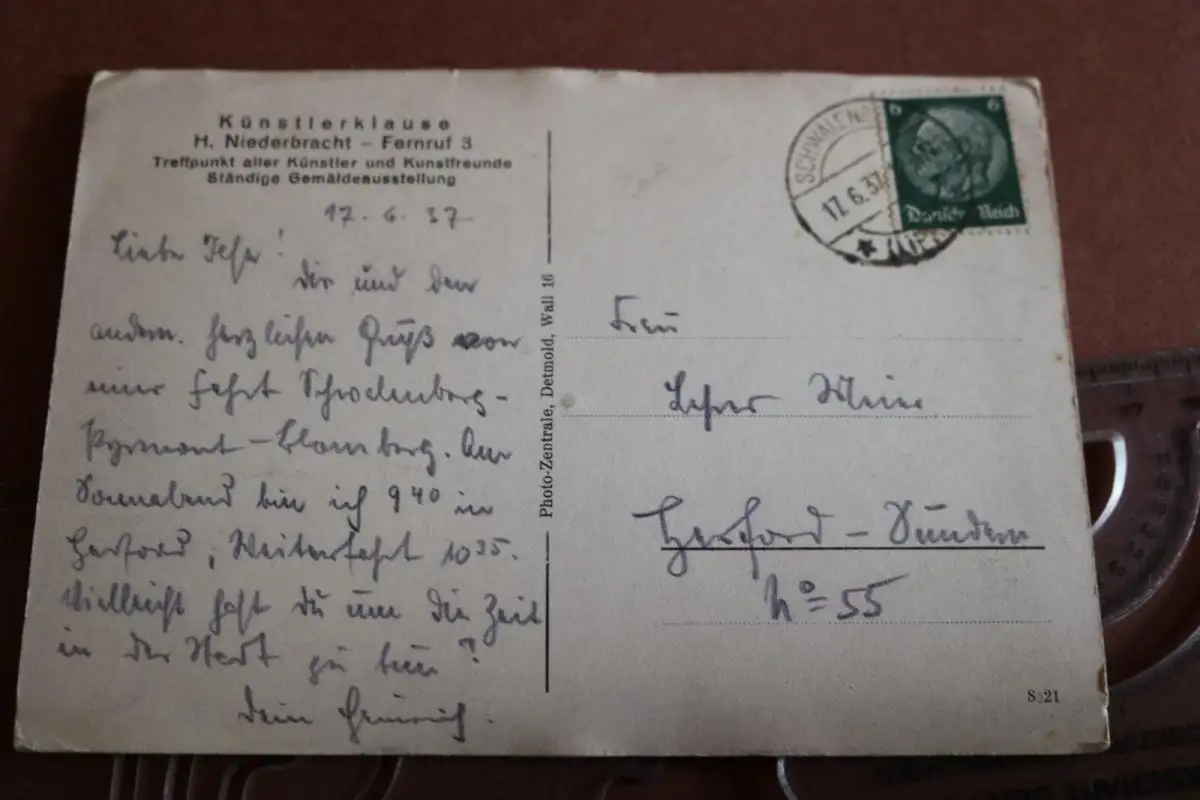 Künstlerklause
H. Niederbracht – Fernruf 3
Treffpunkt aller Künstler und Kunstfreunde
Ständige Gemäldeausstellung
17. 6. 37
Liebe !
Dir und den
andern. herzlichen Gruß von
einer Fahrt Schwalenberg-
Pyrmont – Blomberg. Am
Sonnabend bin ich 9 40 in
Herford, Weiterfahrt 10 35.
Vielleicht hast du um die Zeit
in der Stadt zu tun?
Dein Heinrich.
Photo-Zentrale, Detmold, Wall 16
SCHWALENB
17.6.37
(LIPPE
6 6
Deutsches Reich
Frau
Lehrer Meier
Herford – Sundern
No 55
8321